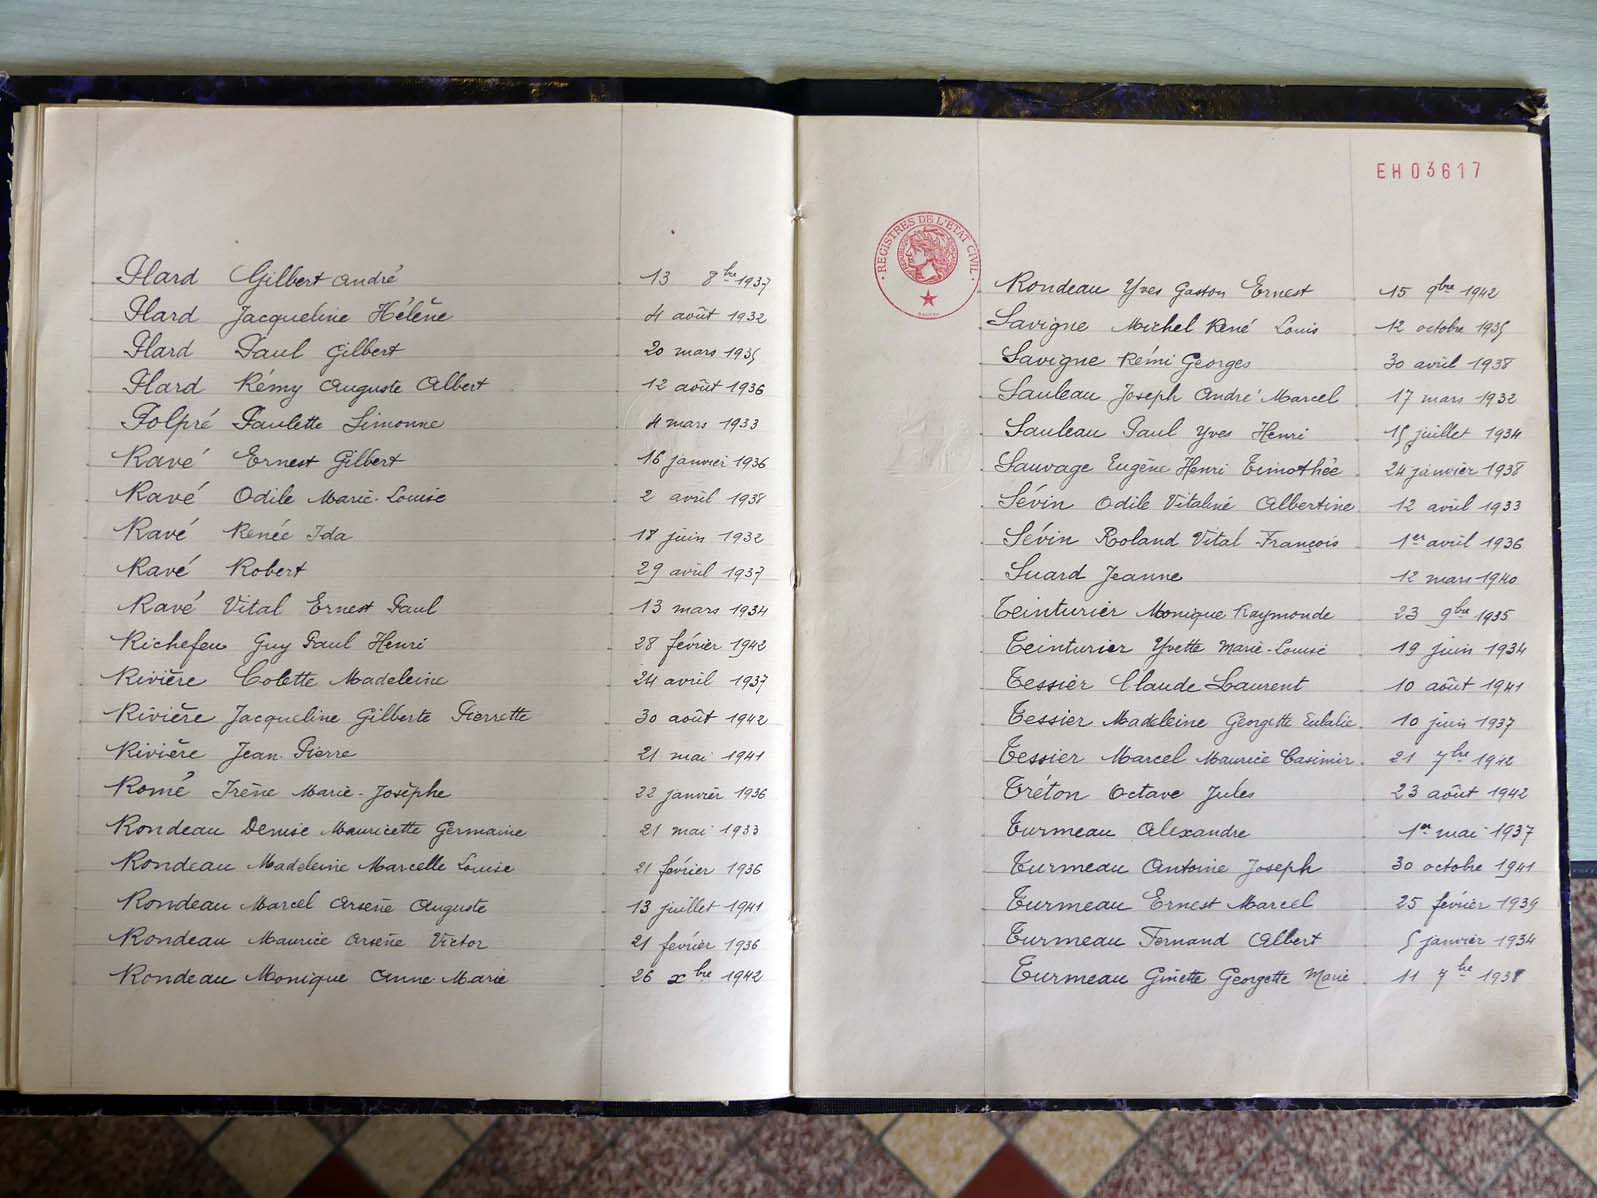 Plard Gilbert André 13 8bre 1937
Plard Jacqueline Hélène 4 août 1932
Plard Paul Gilbert 20 mars 1935
Plard Rémy Auguste Albert 12 août 1936
Polpré Paulette Simonne 4 mars 1933
Ravé Ernest Gilbert 16 janvier 1936
Ravé Odile Marie-Louise 2 avril 1938
Ravé Renée Ida 18 juin 1932
Ravé Robert 29 avril 1937
Ravé Vital Ernest Paul 13 mars 1934
Richefeu Guy Paul Henri 28 février 1942
Rivière Colette Madeleine 24 avril 1937
Rivière Jacqueline Gilberte Pierrette 30 août 1942
Rivière Jean-Pierre 21 mai 1941
Romé Irène Marie-Josèphe 22 janvier 1936
Rondeau Denise Mauricette Germaine 21 mai 1933
Rondeau Madeleine Marcelle Louise 21 février 1936
Rondeau Marcel Arsène Auguste 13 juillet 1941
Rondeau Maurice Arsène Victor 21 février 1936
Rondeau Monique Anne Marie 26 xbre 1942
EH03617
REGISTRES DE L'ÉTAT CIVIL
Rondeau Yves Gaston Ernest 15 9bre 1942
Savigne Michel René Louis 12 octobre 1935
Savigne Rémi Georges 30 avril 1938
Sauleau Joseph André Marcel 17 mars 1932
Sauleau Paul Yves Henri 15 juillet 1934
Sauvage Eugène Henri Timothée 24 janvier 1938
Sévin Odile Vitaline Albertine 12 avril 1933
Sévin Roland Vital François 1er avril 1936
Suard Jeanne 12 mars 1940
Teinturier Monique Raymonde 23 9bre 1935
Teinturier Yvette Marie-Louise 19 juin 1934
Tessier Claude Laurent 10 août 1941
Tessier Madeleine Georgette Eulalie 10 juin 1937
Tessier Marcel Maurice Casimir 21 7bre 1942
Tréton Octave Jules 23 août 1942
Turmeau Alexandre 1er mai 1937
Turmeau Antoine Joseph 30 octobre 1941
Turmeau Ernest Marcel 25 février 1939
Turmeau Fernand Albert 5 janvier 1934
Turmeau Ginette Georgette Marie 11 7bre 1938